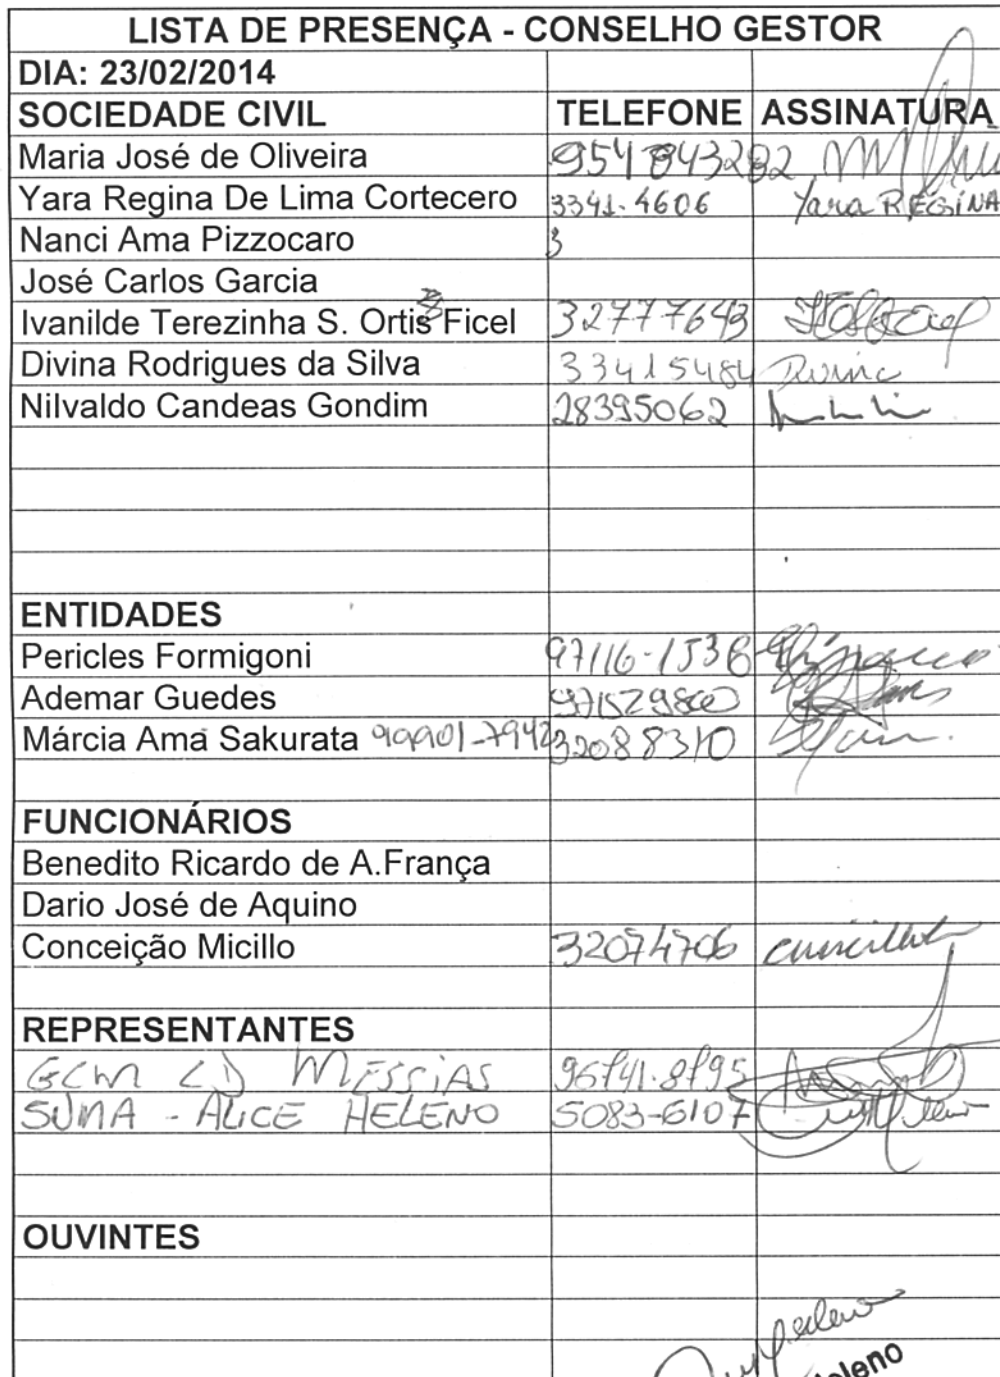 LISTA DE PRESENÇA - CONSELHO GESTOR
DIA: 23/02/2014
SOCIEDADE CIVIL TELEFONE ASSINATURA
Maria José de Oliveira 954843282
Yara Regina De Lima Cortecero 3341-4606 Yara REGINA
Nanci Ama Pizzocaro 3
José Carlos Garcia
Ivanilde Terezinha S. Ortis Ficel 32777643
Divina Rodrigues da Silva 33415484 Divina
Nilvaldo Candeas Gondim 28395062
ENTIDADES
Pericles Formigoni 97116-1536
Ademar Guedes 971529800
Márcia Ama Sakurata 99901-7942 32088310
FUNCIONÁRIOS
Benedito Ricardo de A.França
Dario José de Aquino
Conceição Micillo 32074706
REPRESENTANTES
GCM CD MESSIAS 96741-8795
SUMA - ALICE HELENO 5083-6107
OUVINTES